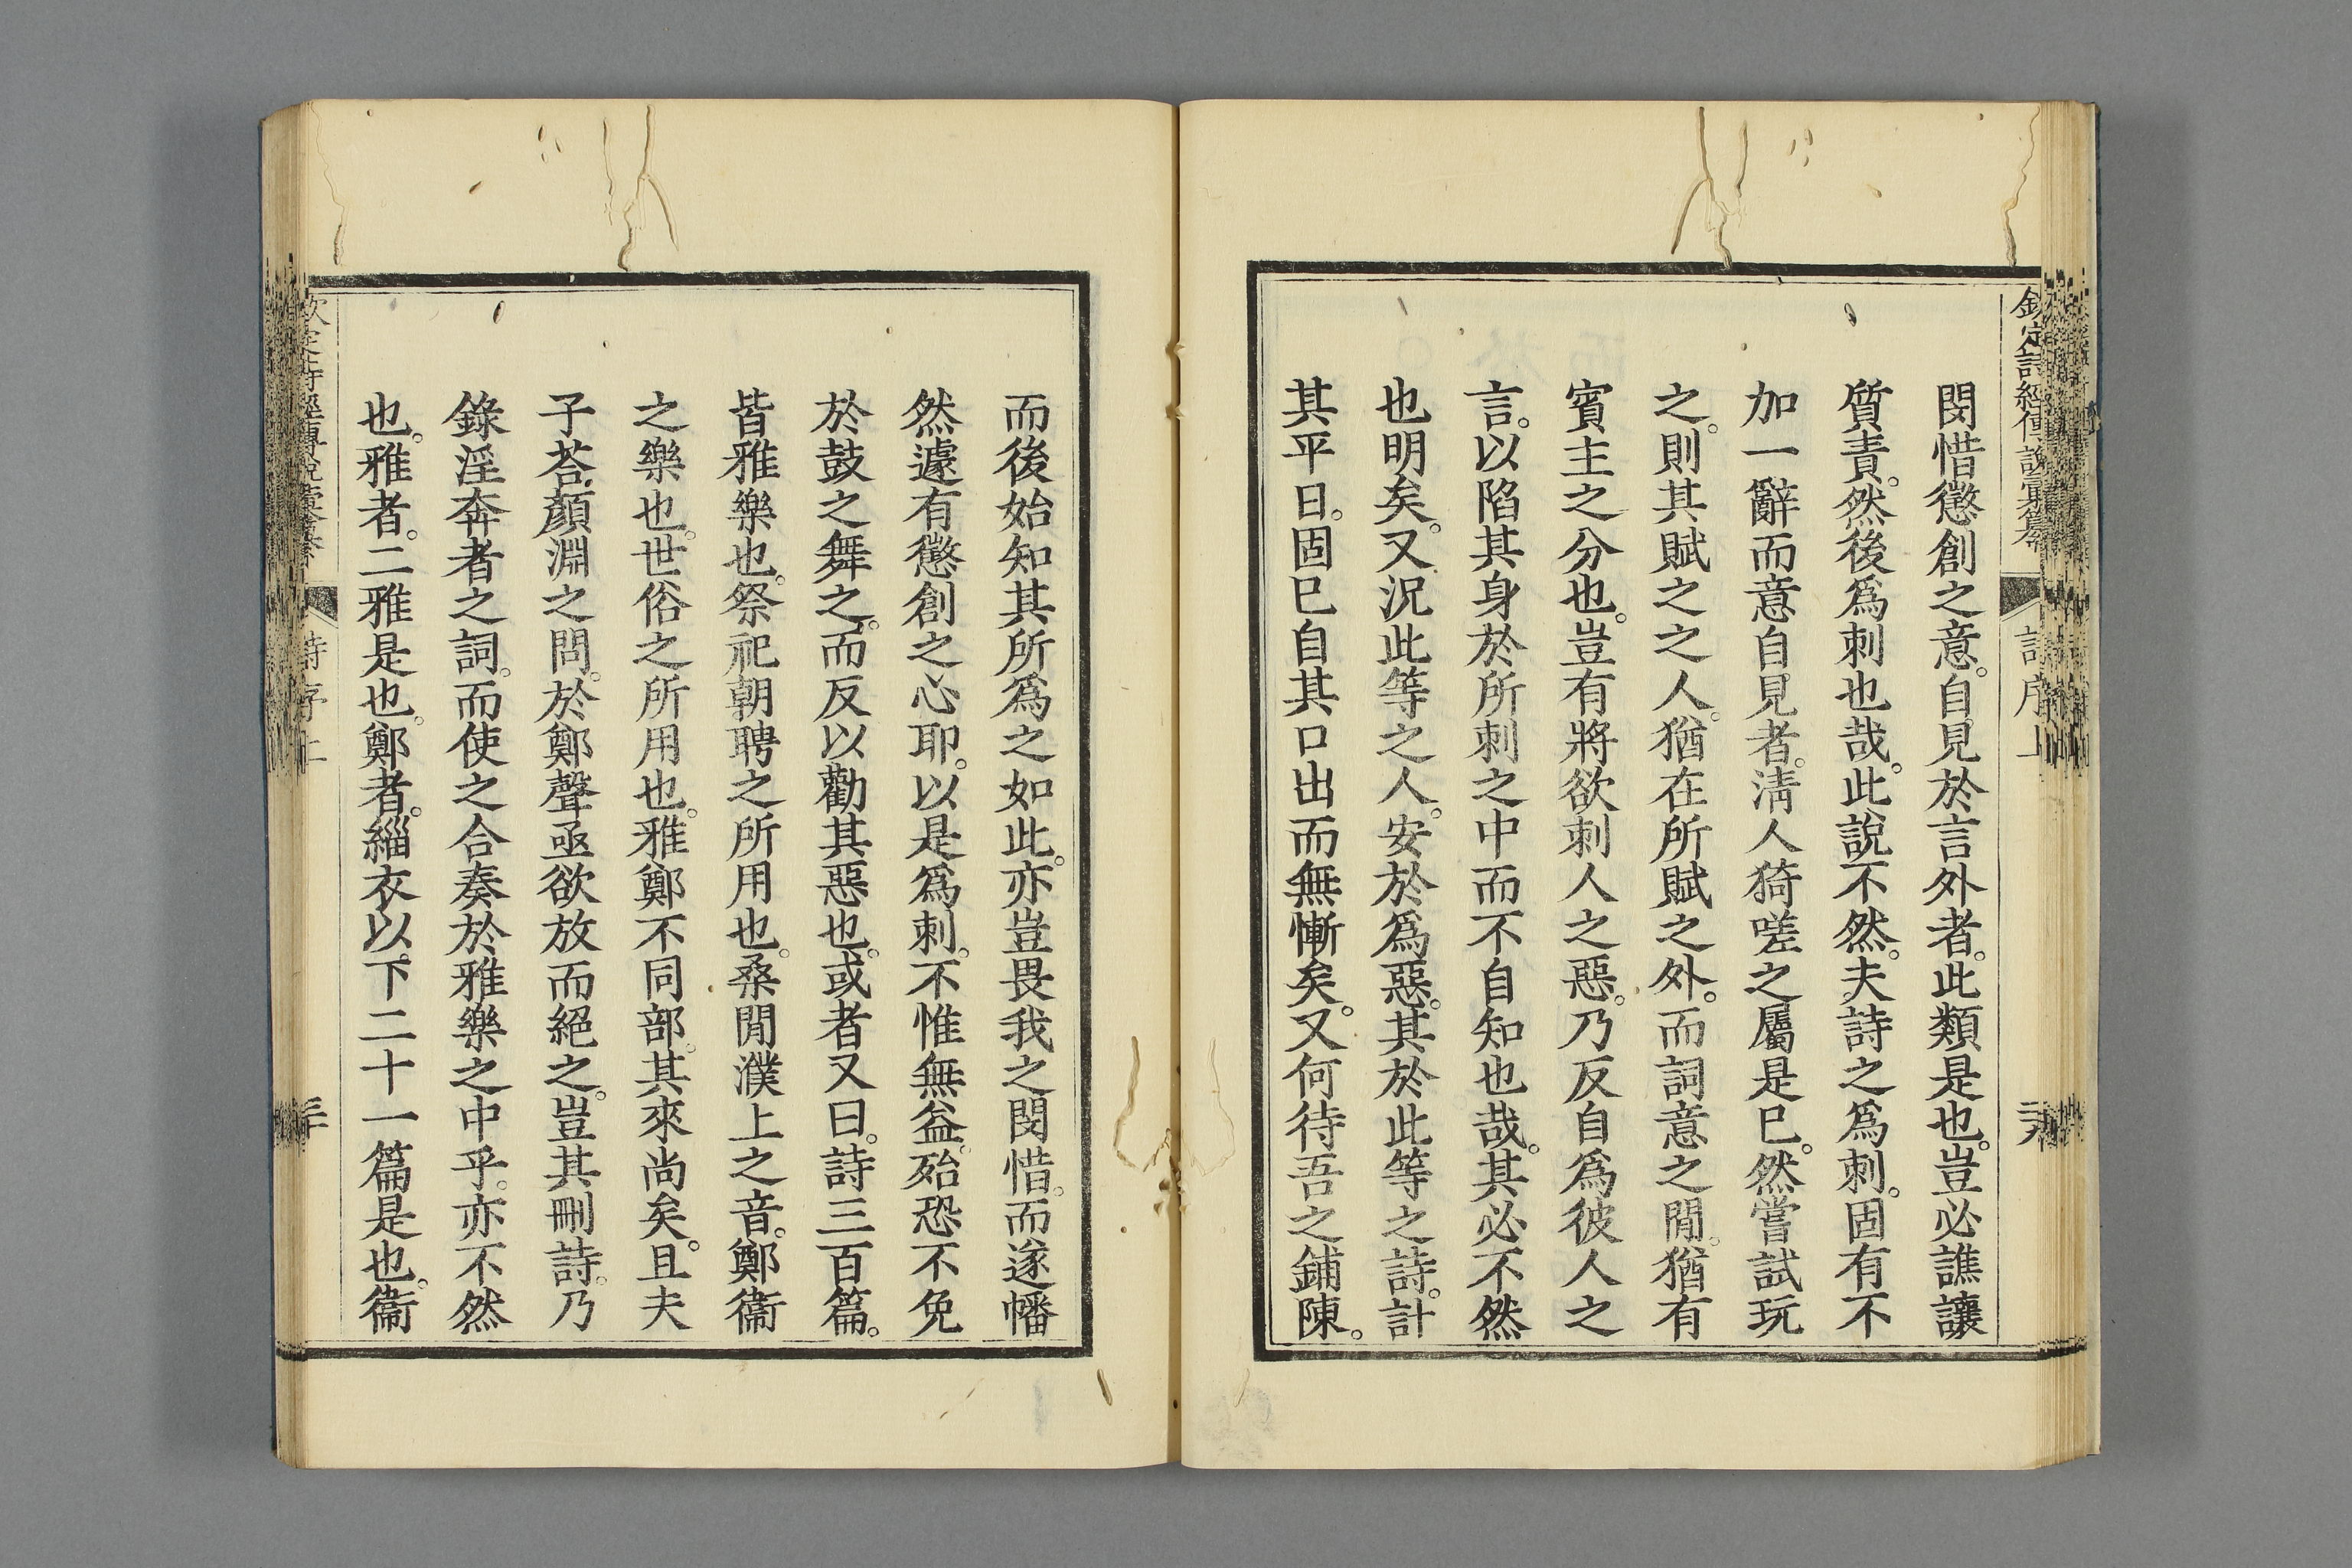 欽定詩經傳說彙纂
詩序上
閔惜懲創之意。自見於言外者。此類是也。豈必譙讓
質責。然後爲刺也哉。此說不然。夫詩之爲刺。固有不
加一辭而意自見者。清人猗嗟之屬是已。然嘗試玩
之。則其賦之之人。猶在所賦之外。而詞意之閒。猶有
賓主之分也。豈有將欲刺人之惡。乃反自爲彼人之
言。以陷其身於所刺之中而不自知也哉。其必不然
也明矣。又況此等之人。安於爲惡。其於此等之詩。計
其平日。固已自其口出而無慚矣。又何待吾之鋪陳。
而後始知其所爲之如此。亦豈畏我之閔惜。而遂幡
然遽有懲創之心耶。以是爲刺。不惟無益。殆恐不免
於鼓之舞之。而反以勸其惡也。或者又曰。詩三百篇。
皆雅樂也。祭祀朝聘之所用也。桑閒濮上之音。鄭衞
之樂也。世俗之所用也。雅鄭不同部。其來尚矣。且夫
子荅顏淵之問。於鄭聲亟欲放而絕之。豈其刪詩。乃
錄淫奔者之詞。而使之合奏於雅樂之中乎。亦不然
也。雅者。二雅是也。鄭者。緇衣以下二十一篇是也。衞
詩序上